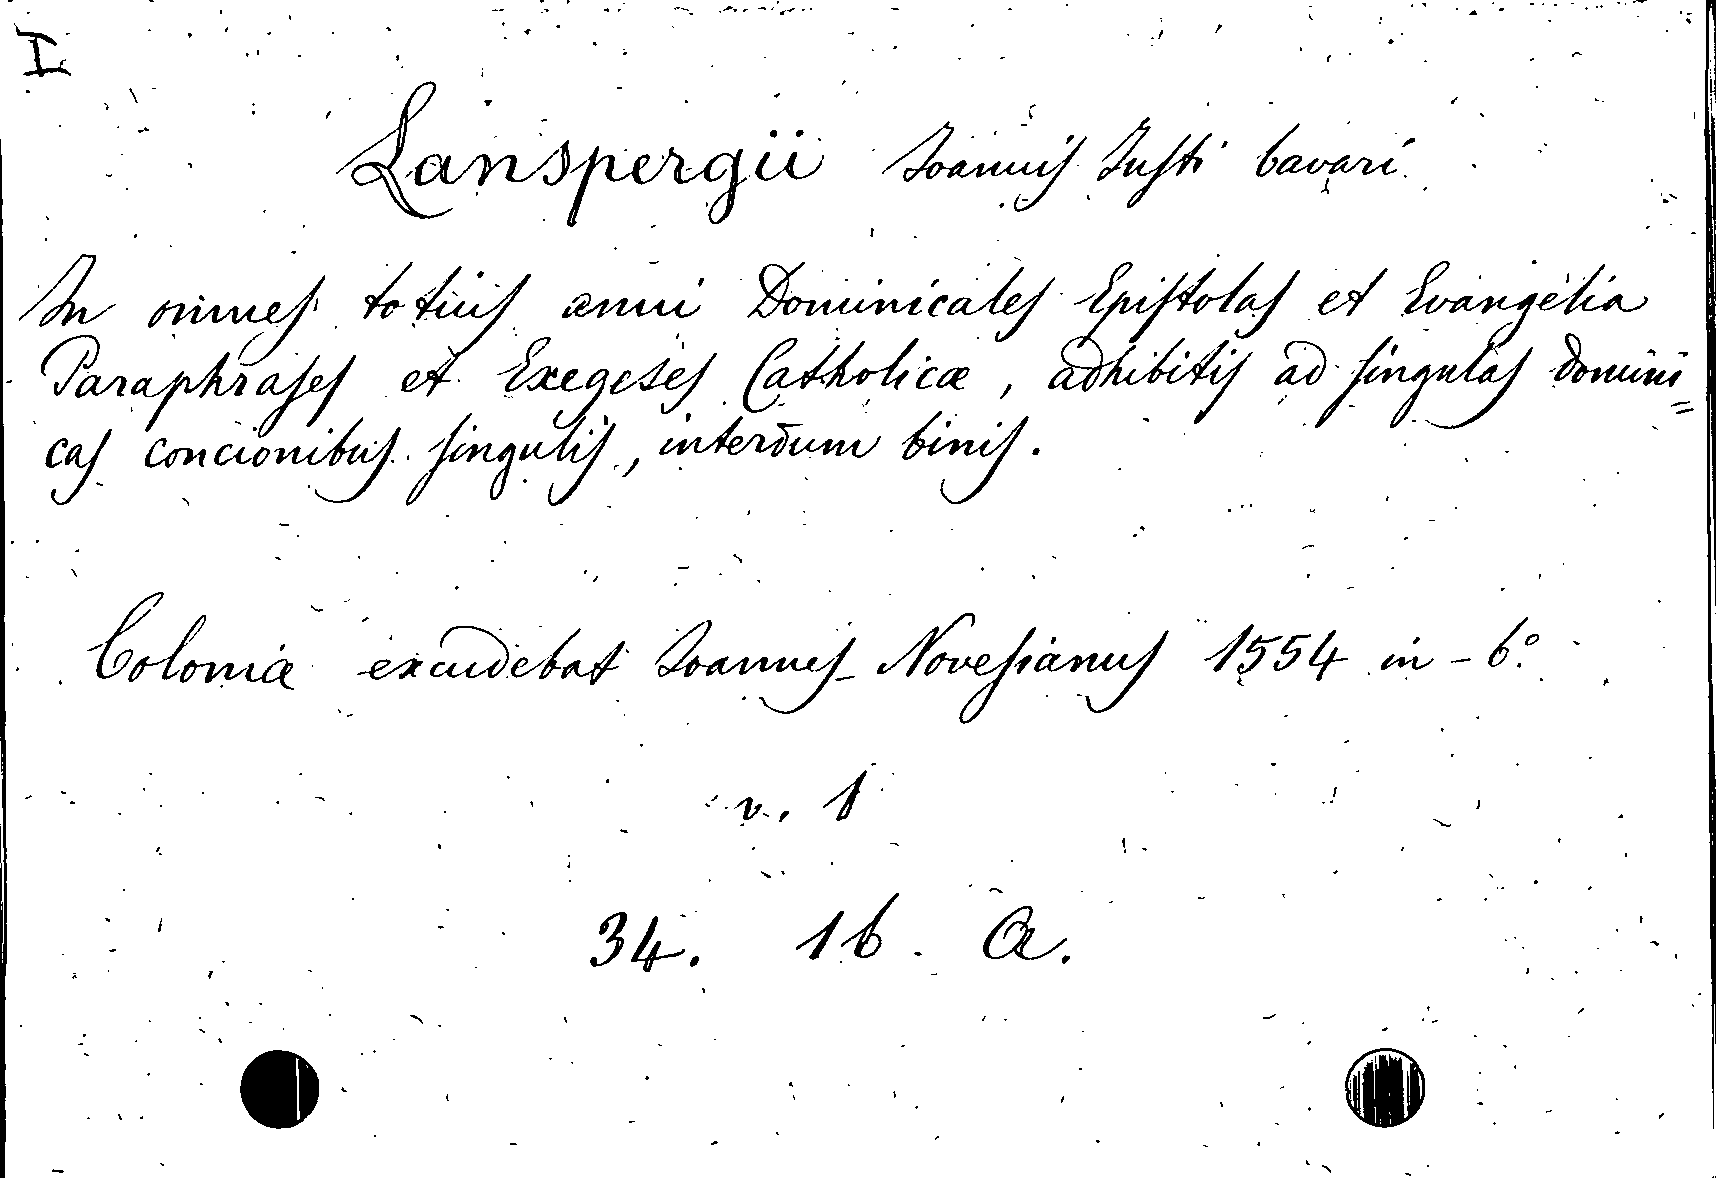 I
Lanspergii Joannis Justi bavari
In omnes totius anni Dominicales Epistolas et Evangelia
Paraphrases et Exegeses Catholicæ, adhibitis ad singulas domini=
cas concionibus singulis, interdum binis.
Coloniæ excudebat Joannes Novesianus 1554 in-6°.
v. 1
34. 16. a.